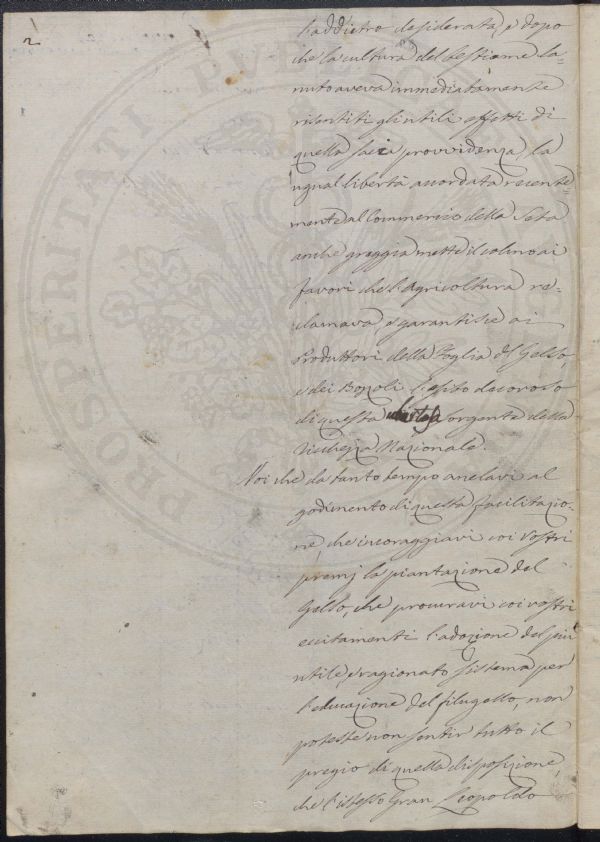 2
l'addietro desiderata, e dopo
che la cultura del bestiame la=
nuto aveva immediatamente
risentiti gl'utili effetti di
quella savia provvidenza, la
ugual libertà accordata recente
mente al Commercio della Seta
anche greggia mette il colmo ai
favori che l'Agricoltura re=
clamava, e garantisce ai
Produttori della Foglia del Gelso,
e dei Bozzoli l'esito decoroso
di questa sorgente della
Ricchezza Nazionale.
Voi che da tanto tempo anelavi al
godimento di questa facilitazio=
ne, che incoraggiavi coi Vostri
premj la piantazione del
Gelso, che procuravi coi vostri
eccitamenti l'adozione del più
utile, e ragionato sistema per
l'educazione del filugello, non
poteste non sentir tutto il
pregio di quella disposizione,
che l'istesso Gran Leopoldo
PROSPERITATI PVBLICAE